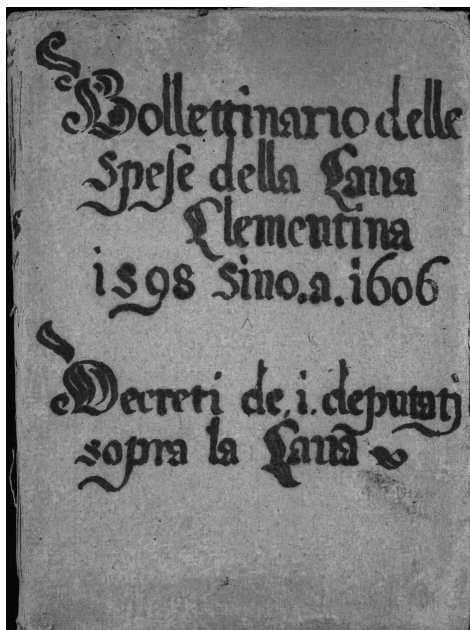 Bollettinario delle
spese della Caua
Clementina
1598 sino. a. 1606
Decreti de. i. deputati
sopra la Caua